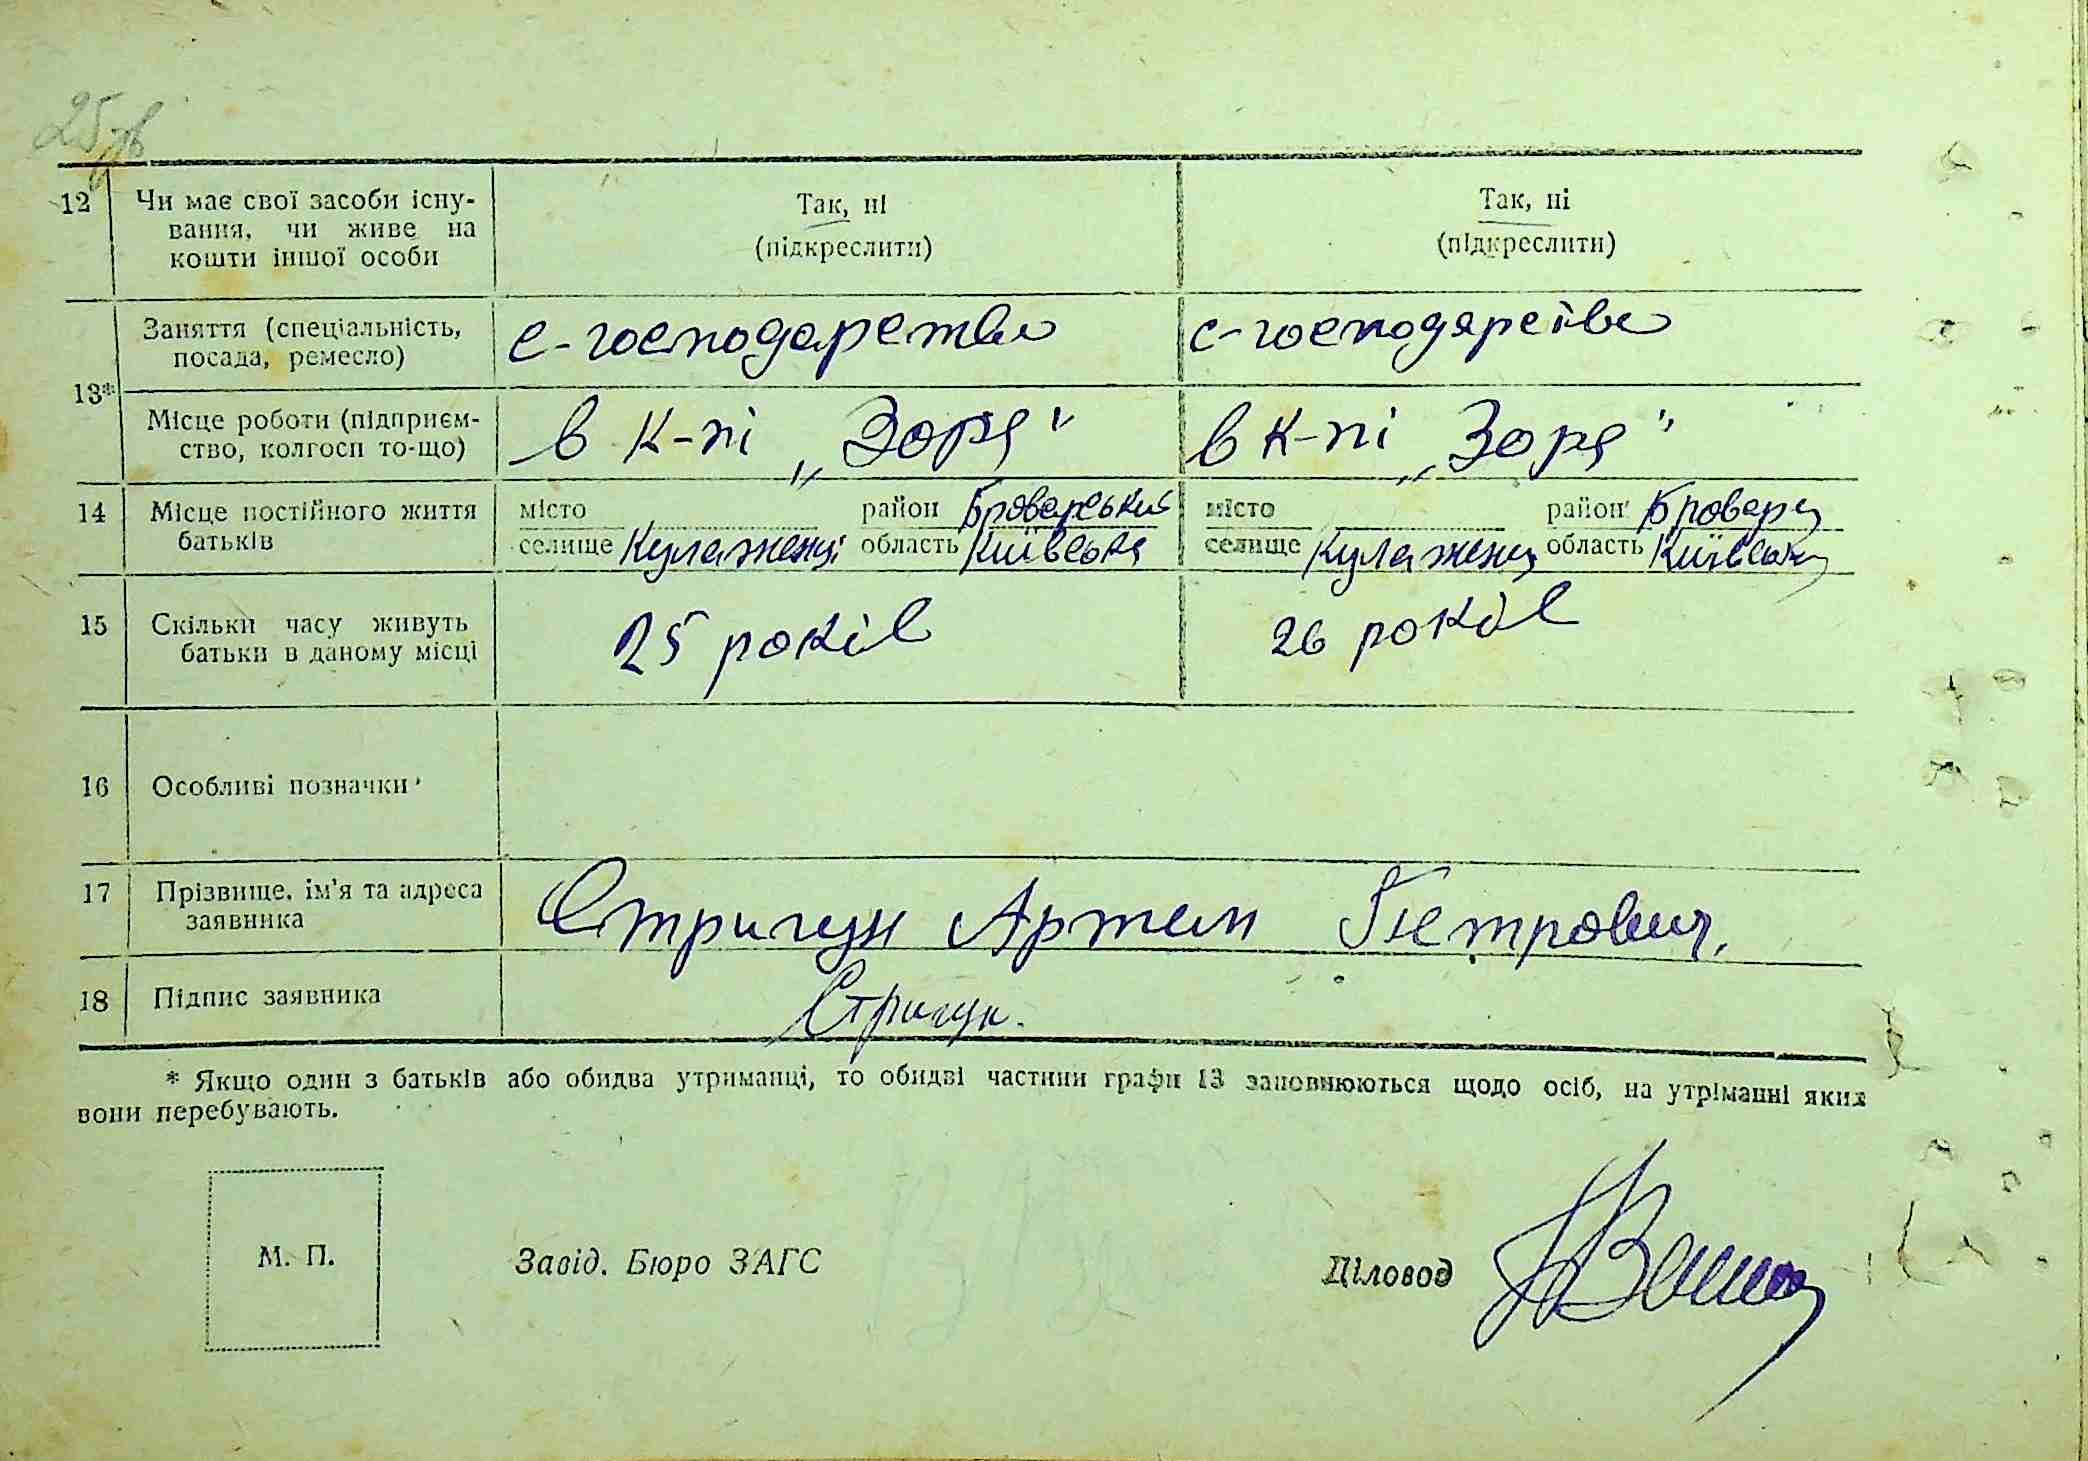 25 зв
12 Чи має свої засоби існу- Так, ні Так, ні
вання, чи живе на (підкреслити) (підкреслити)
кошти іншої особи
13* Заняття (спеціальність, с-господарство с-господарство
посада, ремесло)
Місце роботи (підприєм- в к-пі „Зоря" в к-пі „Зоря"
ство, колгосп то-що)
14 Місце постійного життя місто район Броварський місто район Бровари
батьків селище Кулаженці область Київська селище Кулаженці область Київська
15 Скільки часу живуть 25 років 26 років
батьки в даному місці
16 Особливі позначки
17 Прізвище, ім'я та адреса Стригун Артем Петрович.
заявника
18 Підпис заявника Стригун.
* Якщо один з батьків або обидва утриманці, то обидві частини графи 13 заповнюються щодо осіб, на утріманні яких
вони перебувають.
М. П. Завід. Бюро ЗАГС Діловод